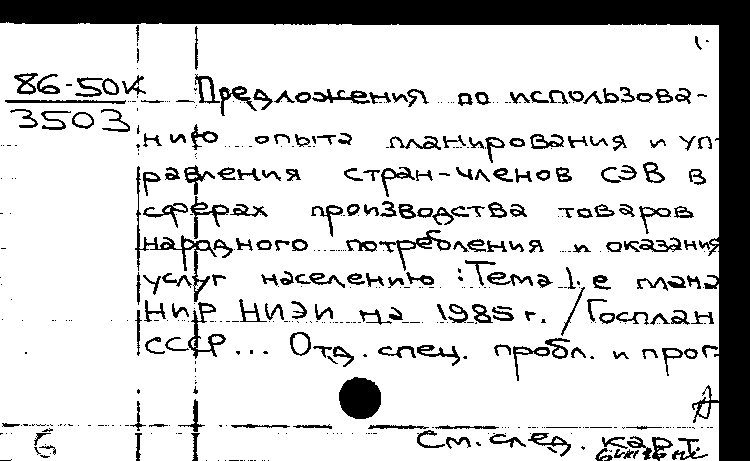 1.
86-50К
3503
Предложения по использова-
нию опыта планирования и уп-
равления стран-членов СЭВ в
сферах производства товаров
народного потребления и оказания
услуг населению : Тема 1.е плана
НИР НИЭИ на 1985 г. / Госплан
СССР... Отд. спец. пробл. и прог-
А
6
См. след. карт